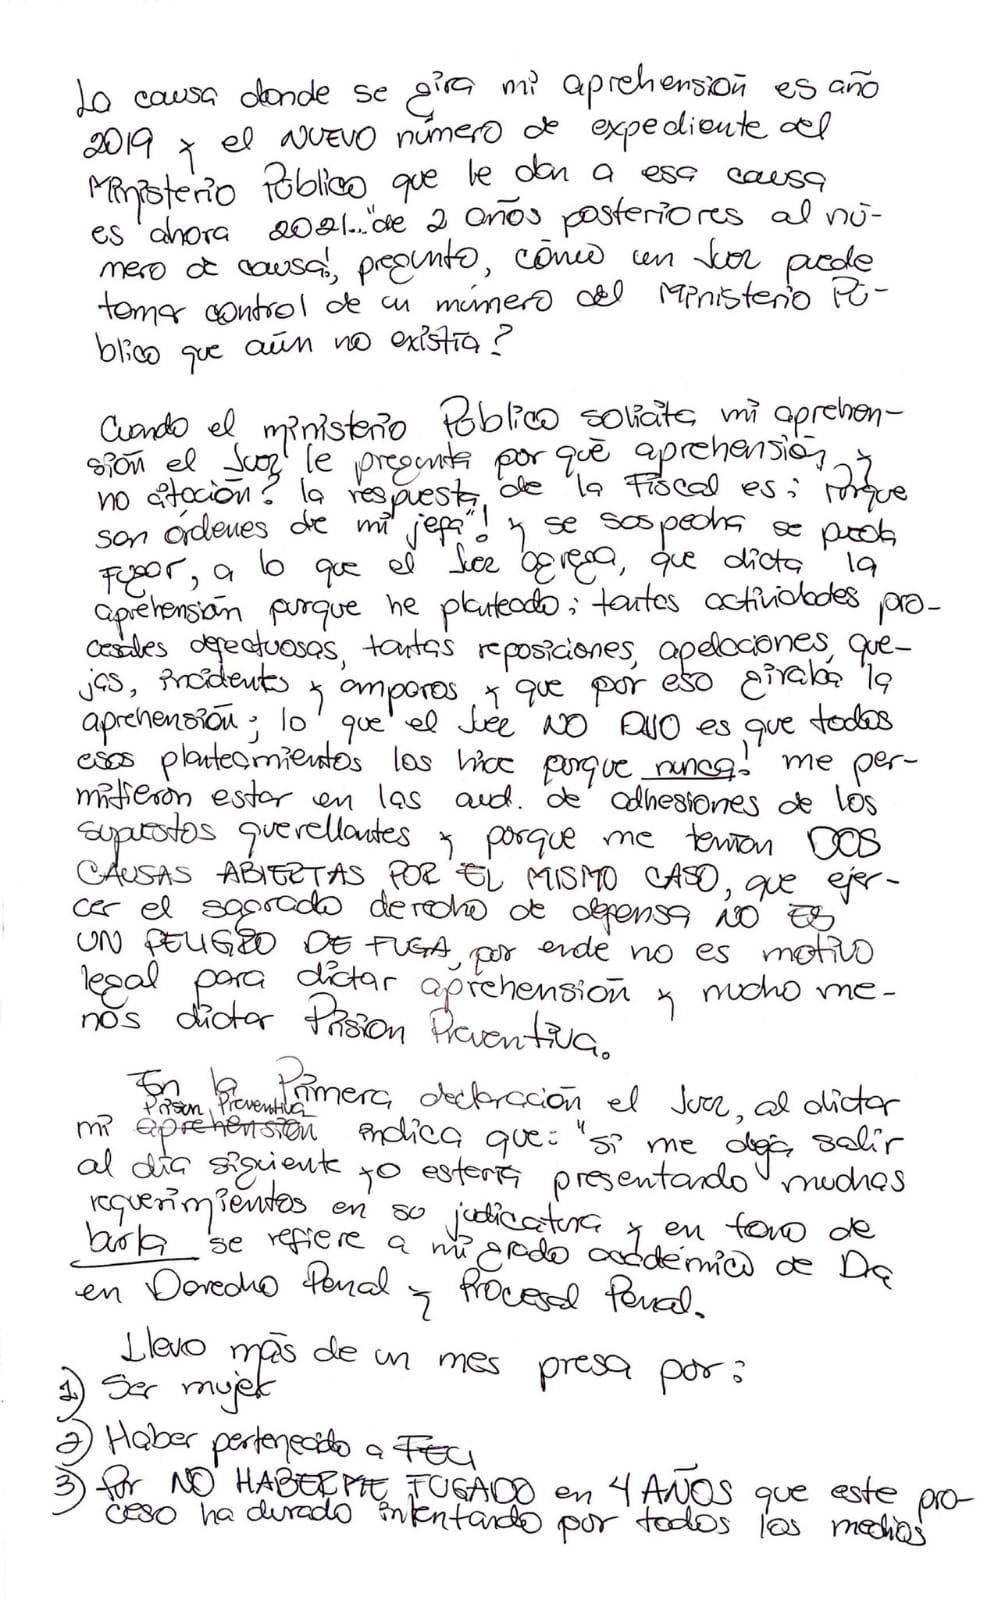 La causa donde se gira mi aprehensión es año
2019 y el NUEVO número de expediente del
Ministerio Público que le dan a esa causa
es "ahora 2021..." de 2 años posteriores al nú-
mero de causa!, pregunto, cómo un Juez puede
tomar control de un número del Ministerio Pú-
blico que aún no existía?
Cuando el ministerio Público solicita mi aprehen-
sión el Juez le pregunta por qué aprehensión y
no citación? la respuesta de la Fiscal es: "Porque
son órdenes de mi jefa"! y se sospecha se pueda
FUGAR, a lo que el Juez agrega, que dicta la
aprehensión porque he planteado; tantas actividades pro-
cesales defectuosas, tantas reposiciones, apelaciones, que-
jas, incidentes y amparos y que por eso giraba la
aprehensión; lo que el Juez NO DIJO es que todos
esos planteamientos los hice porque nunca! me per-
mitieron estar en las aud. de adhesiones de los
supuestos querellantes y porque me tenían DOS
CAUSAS ABIERTAS POR EL MISMO CASO, que ejer-
cer el sagrado derecho de defensa NO ES
UN PELIGRO DE FUGA, por ende no es motivo
legal para dictar aprehensión y mucho me-
nos dictar Prisión Preventiva.
En la Primera declaración el Juez, al dictar
Prisión Preventiva
mi aprehensión indica que: "si me deja salir
al día siguiente yo estaría presentando muchos
requerimientos en su judicatura y en tono de
burla se refiere a mi grado académico de Dra
en Derecho Penal y Procesal Penal.
Llevo más de un mes presa por:
1) Ser mujer
2) Haber pertenecido a FECI
3) Por NO HABERME FUGADO en 4 AÑOS que este pro-
ceso ha durado intentando por todos los medios